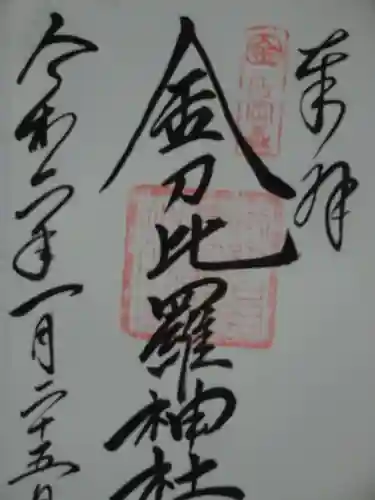 奉拝
金刀比羅神社
令和六年一月二十五日